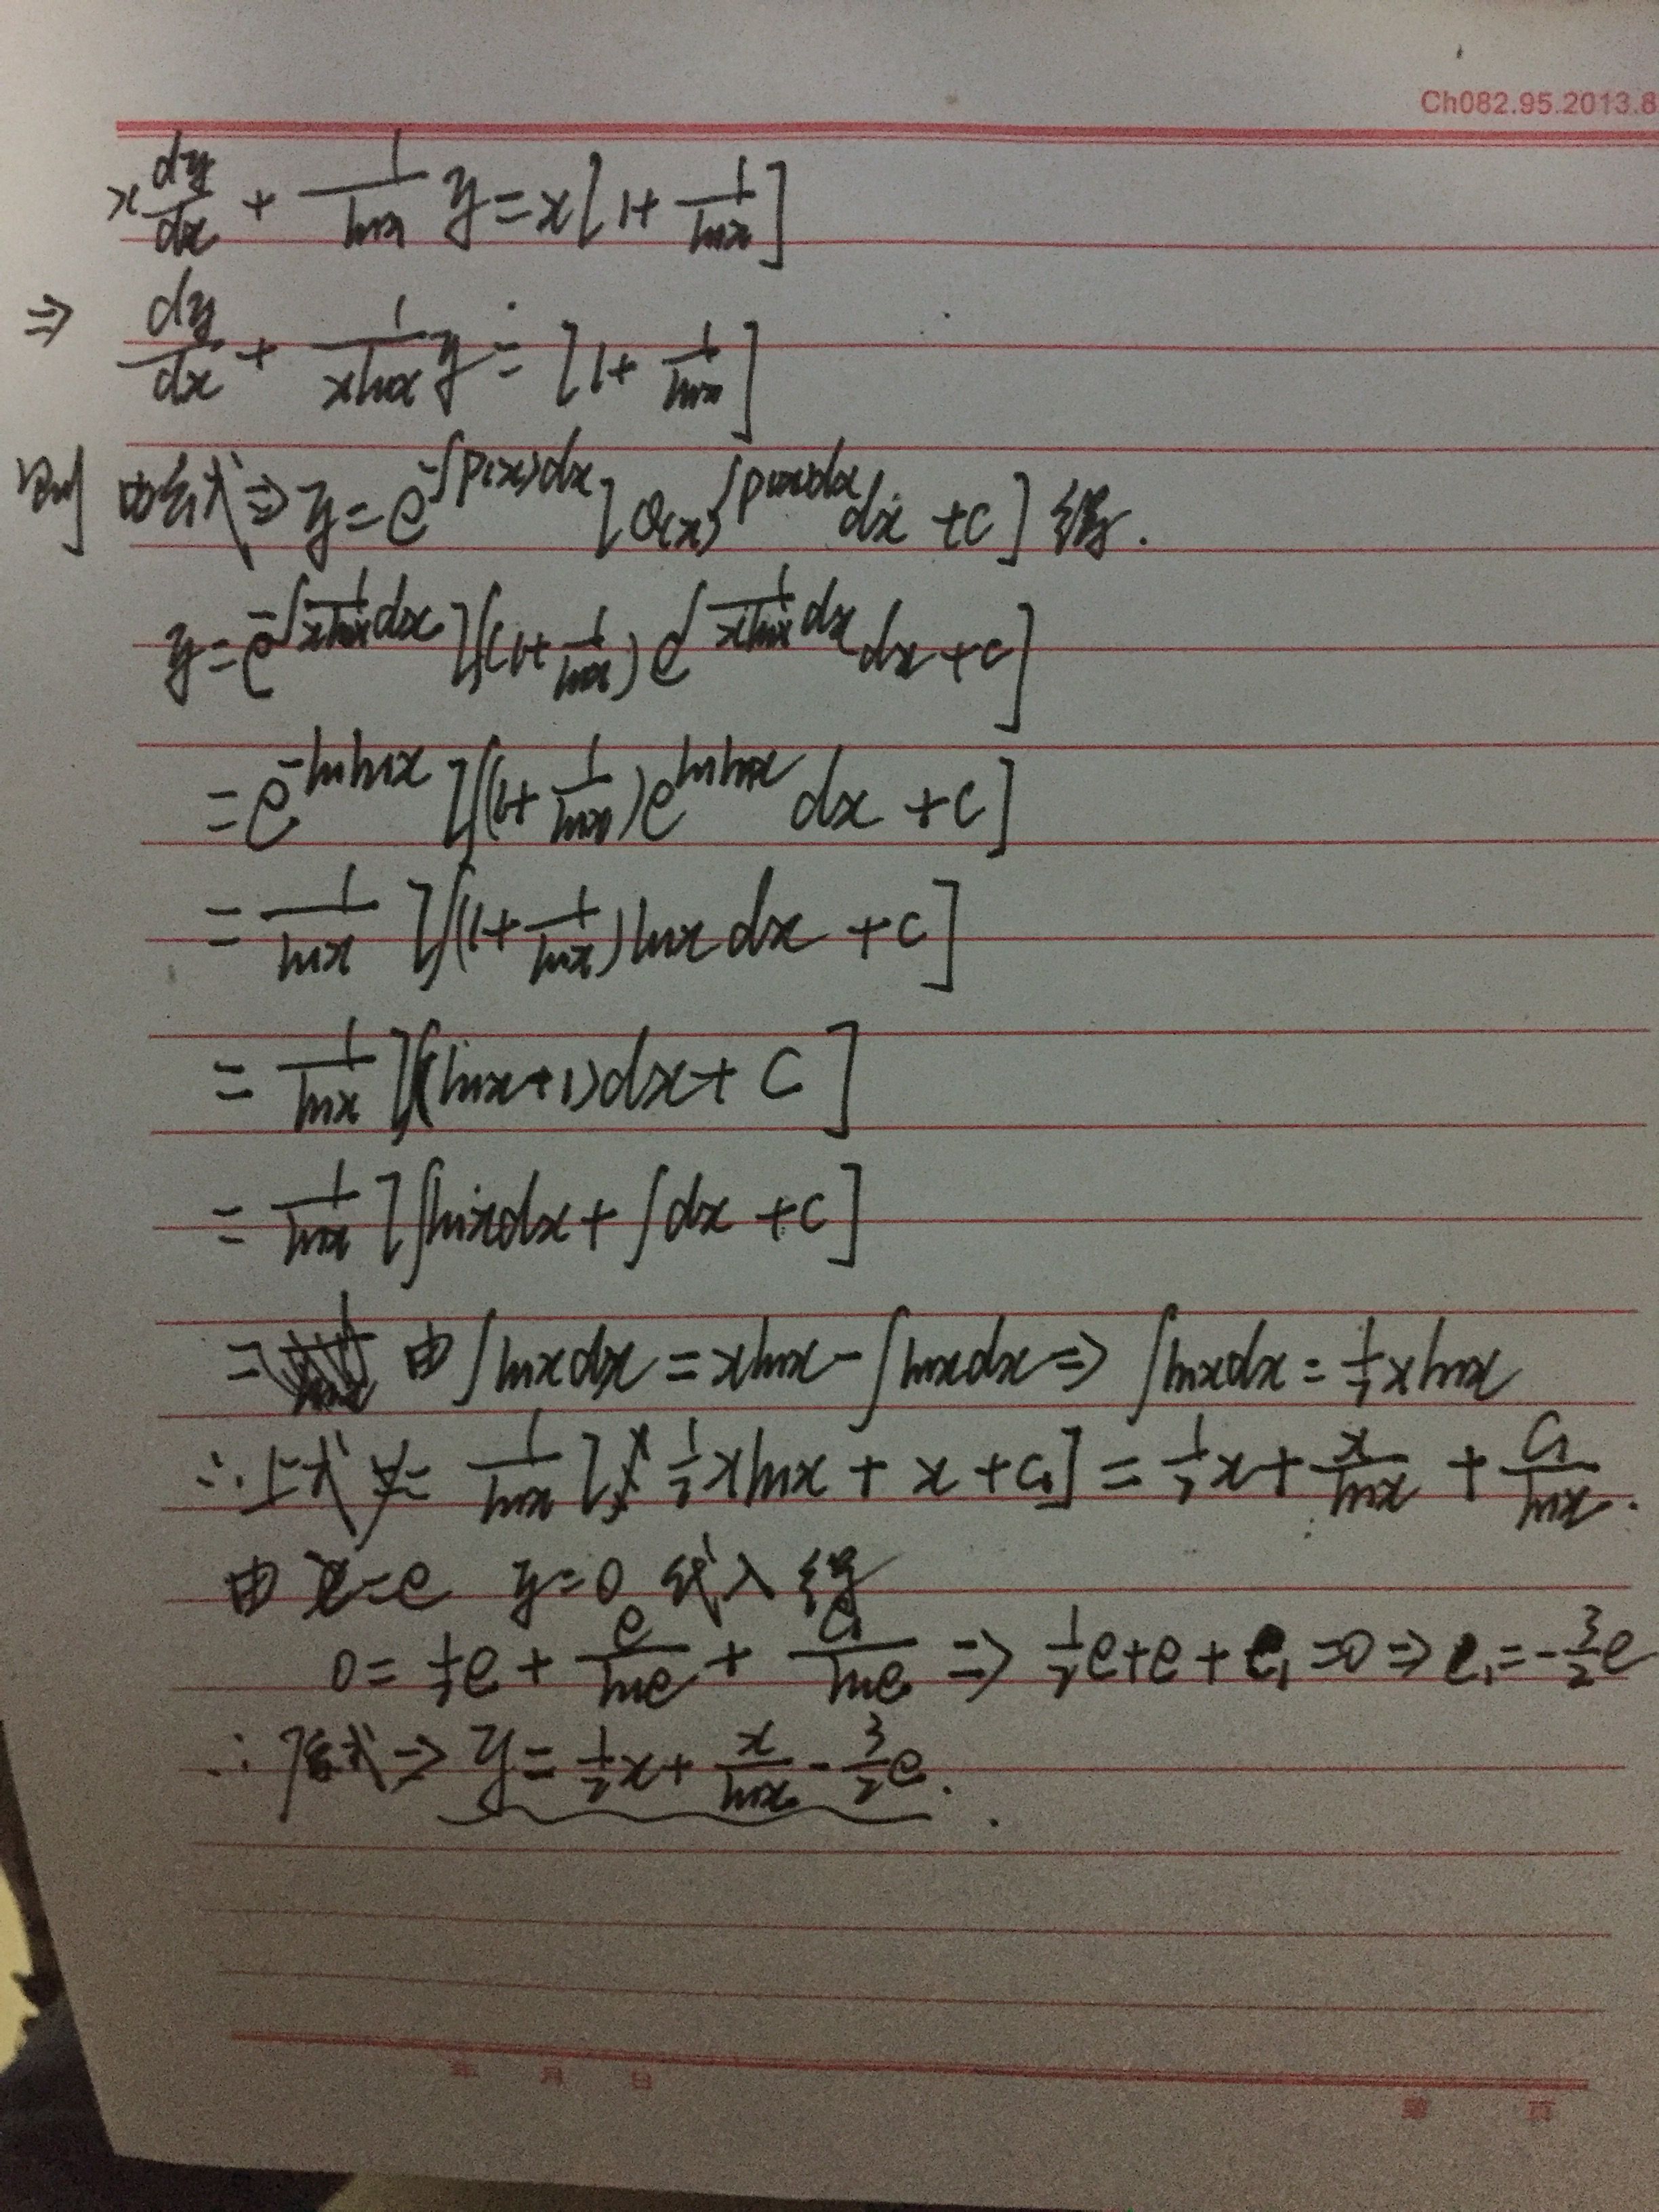 Ch082.95.2013.8
x dy/dx + 1/lnx y = x[1+ 1/lnx]
⇒ dy/dx + 1/(xlnx) y = [1+ 1/lnx]
则 由公式⇒ y = e^(-∫p(x)dx) [Q(x)∫^(p(x)dx) dx + c] 得.
y = e^(-∫1/(xlnx) dx) [∫(1+ 1/lnx) e^(∫1/(xlnx) dx) dx + c]
= e^(-lnlnx) [∫(1+ 1/lnx) e^(lnlnx) dx + c]
= 1/lnx [∫(1+ 1/lnx) lnx dx + c]
= 1/lnx [∫(lnx+1)dx + C]
= 1/lnx [∫lnxdx + ∫dx + c]
= 由∫lnxdx = xlnx - ∫lnxdx ⇒ ∫lnxdx = 1/2 xlnx
∴上式 y = 1/lnx [1/2 xlnx + x + C₁] = 1/2 x + x/lnx + C₁/lnx.
由 x=e y=0 代入得
0 = 1/2 e + e/lne + C₁/lne ⇒ 1/2 e + e + C₁ = 0 ⇒ C₁ = -3/2 e
∴ 原式⇒ y = 1/2 x + x/lnx - 3/2 e.
年 月 日
第 页